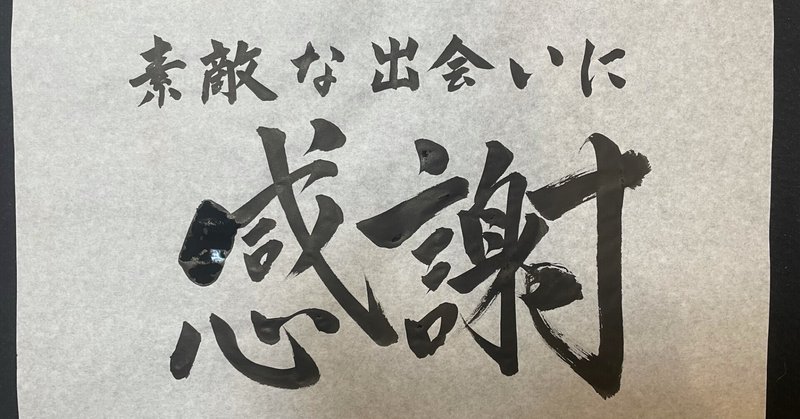 素敵な出会いに
感謝